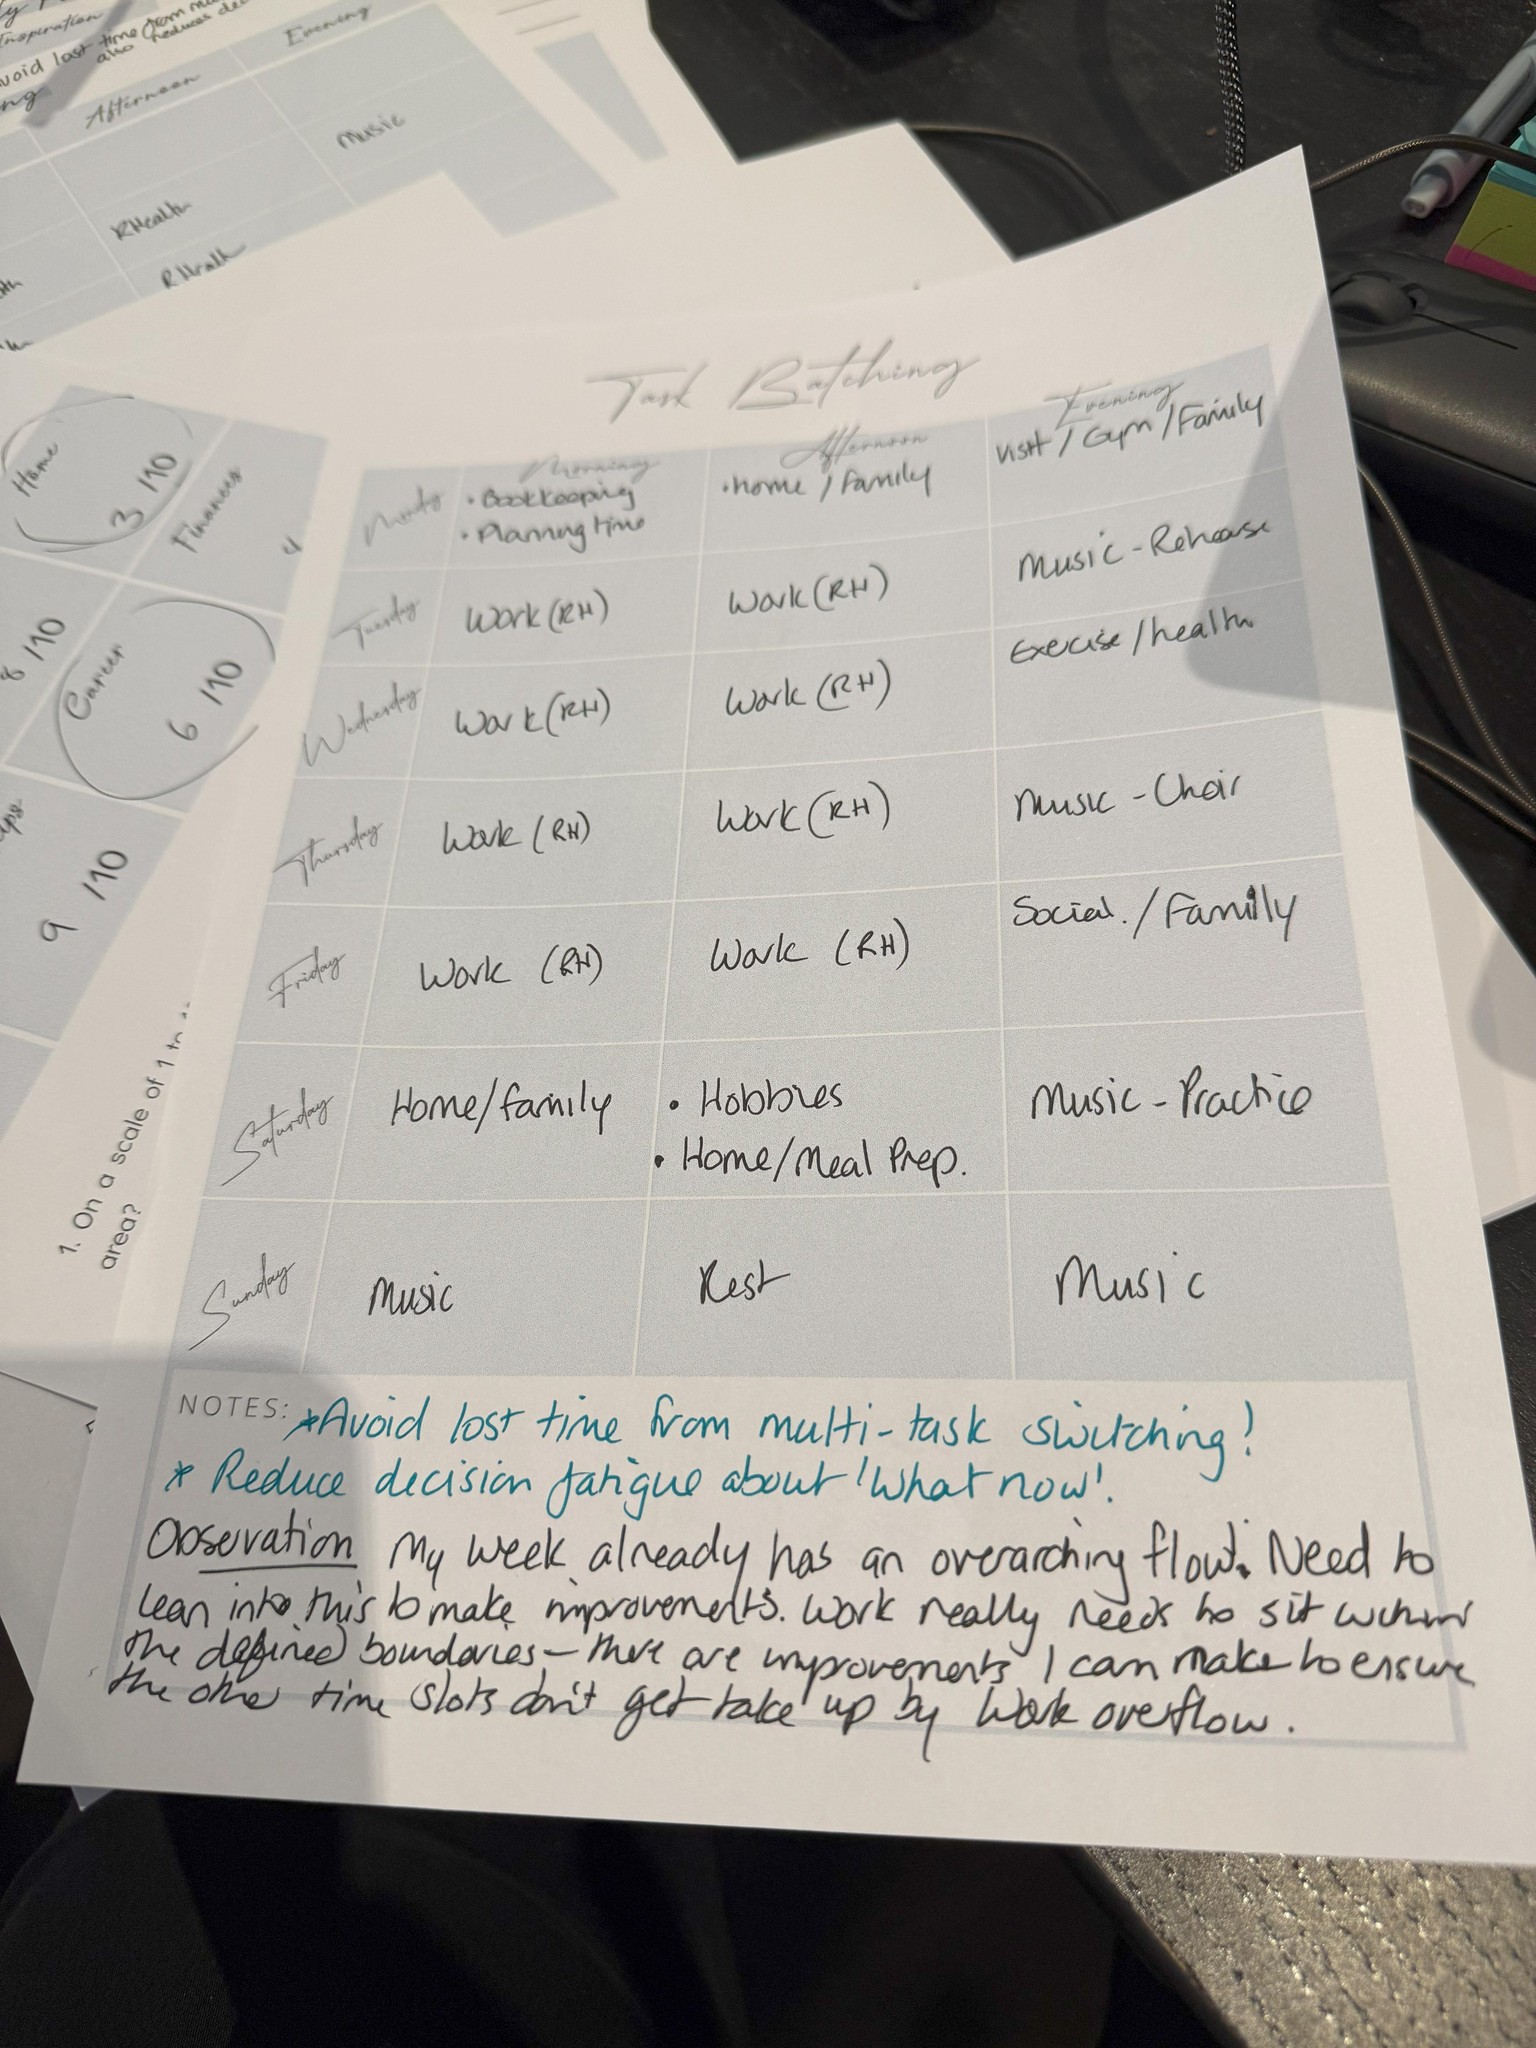 Inspiration
Avoid lost time from
also reduces
Afternoon
Evening
Music
RHealth
RHealth
Home
3 /10
Finances
4
8 /10
Career
6 /10
9 /10
1. On a scale of 1 to
area?
Task Batching
Morning
Afternoon
Evening
Monday
• Bookkeeping
• Planning time
• Home / Family
Visit / Gym / Family
Tuesday
Work (RH)
Work (RH)
Music - Rehearse
Wednesday
Work (RH)
Work (RH)
Exercise / health
Thursday
Work (RH)
Work (RH)
Music - Choir
Friday
Work (RH)
Work (RH)
Social. / Family
Saturday
Home/family
• Hobbies
• Home/Meal Prep.
Music - Practice
Sunday
Music
Rest
Music
NOTES: *Avoid lost time from multi-task switching!
* Reduce decision fatigue about 'What now'.
Observation My week already has an overarching flow. Need to
lean into this to make improvements. Work really needs to sit within
the defined boundaries - there are improvements I can make to ensure
the other time slots don't get take up by Work overflow.